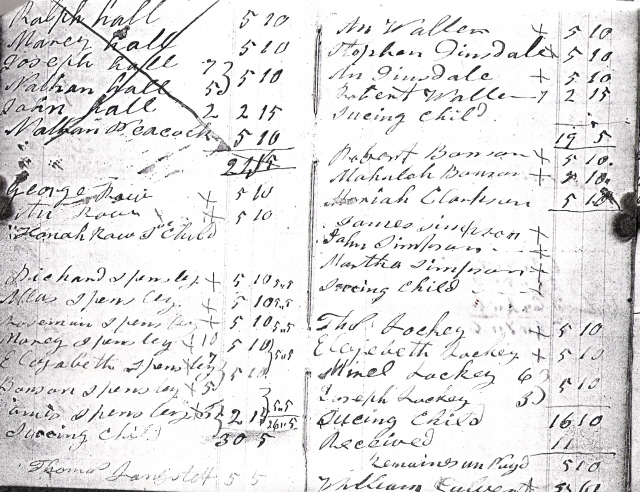 Ralph hall 5 10
Marey hall 5 10
Joseph hall 7 } 5 10
Nathan hall 5
John hall 2 2 15
Nathan Peacock 5 10
24 15
George Raw + 5 10
An Raw + 5 10
Honah Raw Sc Child
Richard Spensley + 5 10 5"5
Alas Spensley + 5 10 5"5
Roseman Spensley + 5 10 5"5
Marey Spensley + 10 } 5 10 } 5"5
Elizabeth Spensley 7 5 10
Bonson Spensley + 5
Spensley 3 } 2 15 } 5"5
26"5
Sucing Child 30 5
Thomas 5 5
An Waller + 5 10
Stephen Dinsdale + 5 10
An Dinsdale + 5 10
Robert Waller 1 2 15
Sucing Child
19 5
Robert Bonson + 5 10
Mahaleh Bonson + 5 10
Honiah Clarkson 5 10
James Simpson +
John Simpson
Martha Simpson +
Sucing Child
Tho. Lockey + 5 10
Elizebeth Lockey + 5 10
Lockey 6 } 5 10
Joseph Lockey 3
Sucing Child 16 10
Received 11
Remaines un Payd 5 10
William Calvert